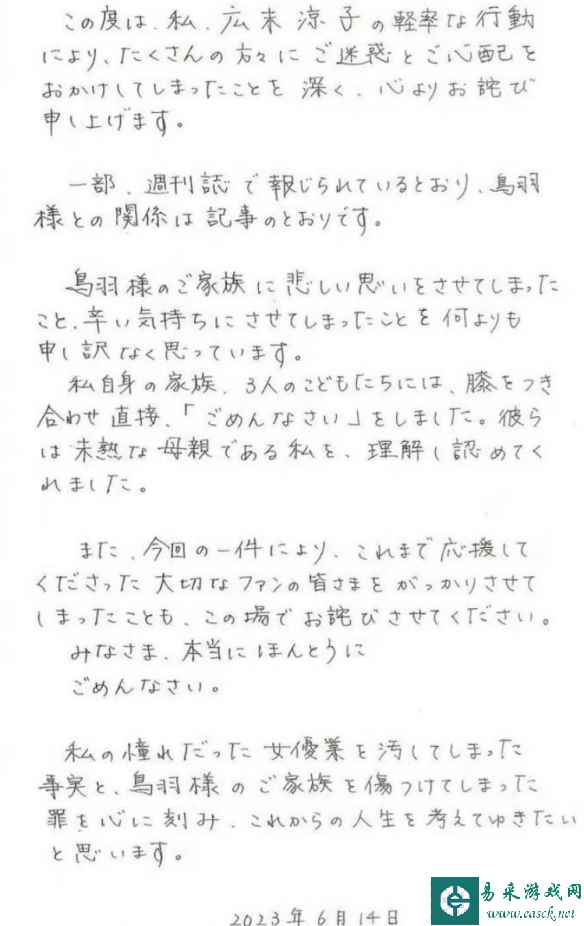 この度は、私、広末涼子の軽率な行動
により、たくさんの方々にご迷惑とご心配を
おかけしてしまったことを深く、心よりお詫び
申し上げます。
一部、週刊誌で報じられているとおり、鳥羽
様との関係は記事のとおりです。
鳥羽様のご家族に悲しい思いをさせてしまった
こと、辛い気持ちにさせてしまったことを何よりも
申し訳なく思っています。
私自身の家族、3人のこどもたちには、膝をつき
合わせ直接、「ごめんなさい」をしました。彼ら
は未熟な母親である私を、理解し認めてく
れました。
また、今回の一件により、これまで応援して
くださった大切なファンの皆さまをがっかりさせて
しまったことも、この場でお詫びさせてください。
みなさま、本当にほんとうに
ごめんなさい。
私の憧れだった女優業を汚してしまった
事実と、鳥羽様のご家族を傷つけてしまった
罪を心に刻み、これからの人生を考えてゆきたい
と思います。
2023年6月14日
易采游戏网
www.easck.net